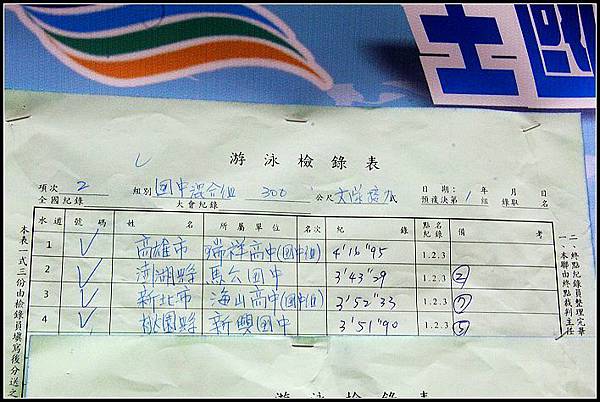 游泳檢錄表
項次 2 組別 國中混合組 300 公尺 日期： 年 月 日
全國紀錄 大會紀錄 預復決第 1 組 錄取 名
水道 號碼 姓名 所屬單位 名次 紀錄 點名紀錄 備考
1 ✓ 高雄市 瑞祥高中(國中組) 4'16"95 1.2.3
2 ✓ 澎湖縣 馬公國中 3'43"29 1.2.3 ②
3 ✓ 新北市 海山高中(國中組) 3'52"33 1.2.3 ⑦
4 ✓ 桃園縣 新興國中 3'51"90 1.2.3 ⑤
本表一式三份由檢錄員填寫後分送之
一、本聯由終點裁判主任
二、終點紀錄員整理完畢
游泳檢錄表